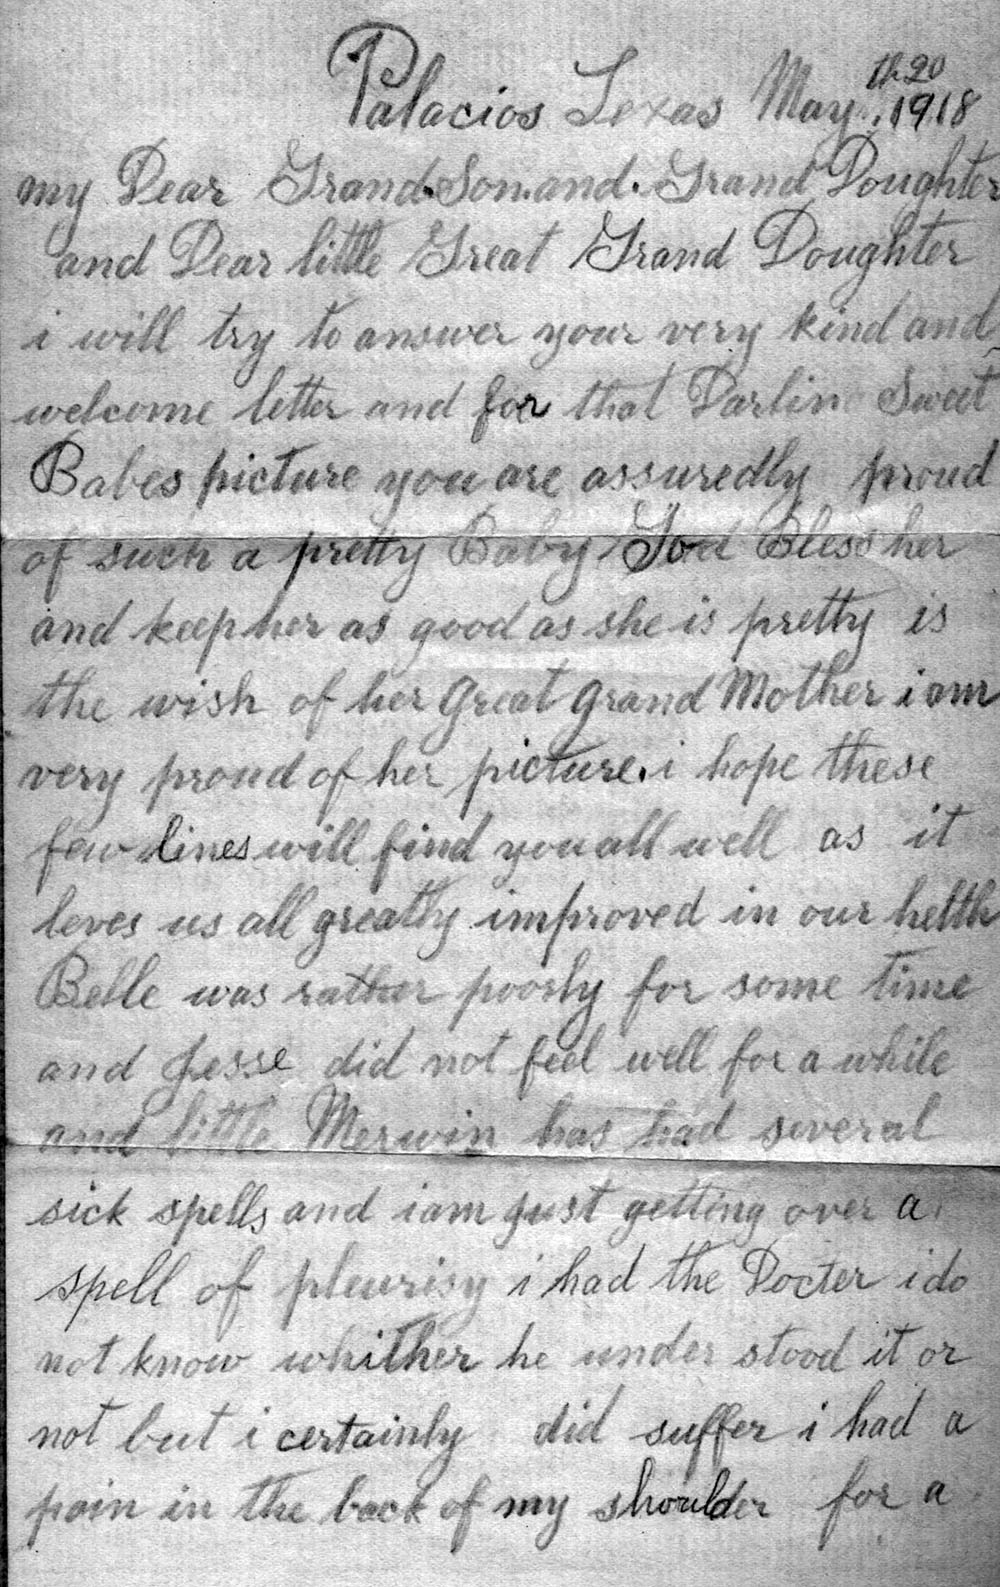 Palacios Texas May th20 1918
my Dear Grand Son and Grand Doughter
and Dear little Great Grand Doughter
i will try to answer your very kind and
welcome letter and for that Darlin Sweet
Babes picture you are assuredly proud
of such a pretty Baby God Bless her
and keep her as good as she is pretty is
the wish of her great grand Mother i am
very proud of her picture. i hope these
few lines will find you all well as it
leves us all greatly improved in our helth
Belle was rather poorly for some time
and Jesse did not feel well for a while
and little Merwin has had several
sick spells and i am just getting over a
spell of pleurisy i had the Docter i do
not know whither he under stood it or
not but i certainly did suffer i had a
pain in the back of my shoulder for a